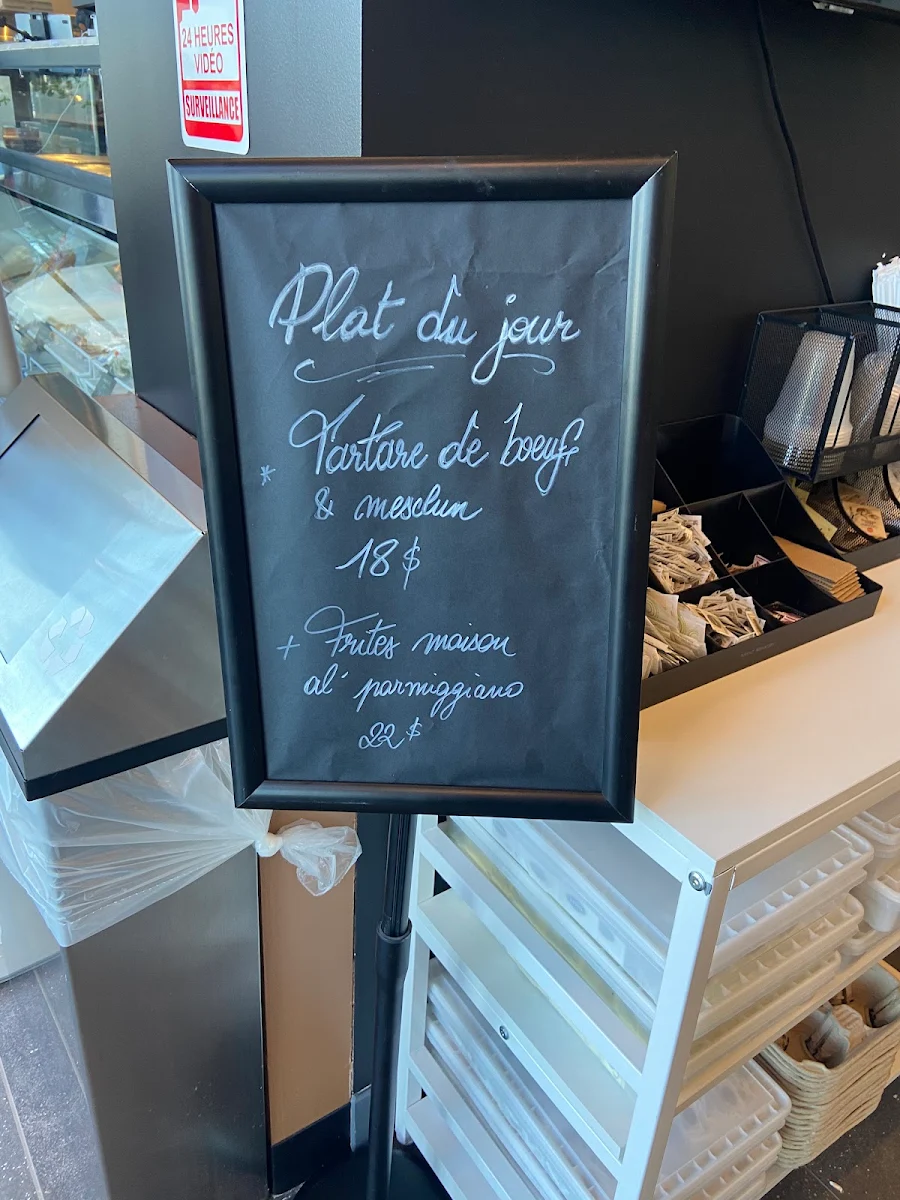 24 HEURES
VIDÉO
SURVEILLANCE
Plat du jour
* Tartare de boeuf
& mesclun
18 $
+ Frites maison
al' parmiggiano
22 $